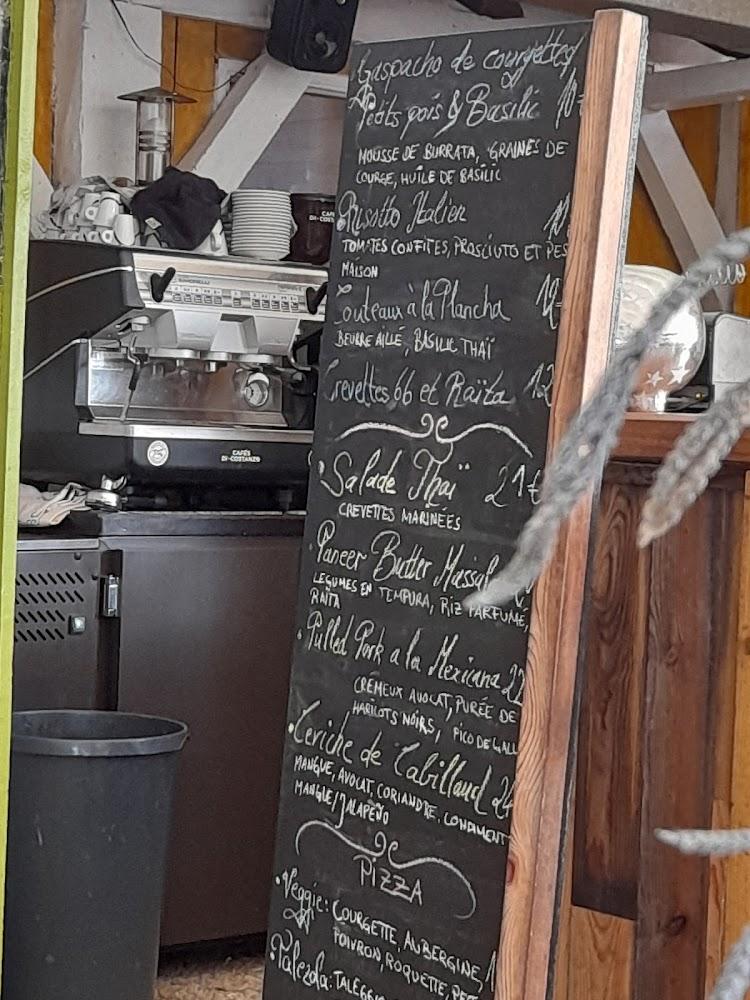 Gaspacho de courgettes/
Petits pois & Basilic 10
MOUSSE DE BURRATA, GRAINES DE
COURGE, HUILE DE BASILIC
Risotto Italien
TOMATES CONFITES, PROSCIUTO ET PES
MAISON
Couteaux à la Plancha 12
BEURRE AILLÉ, BASILIC THAÏ
Crevettes 66 et Raïta 12
Salade Thaï 21€
CREVETTES MARINÉES
Paneer Butter Massal
LEGUMES EN TEMPURA, RIZ PARFUMÉ,
RAÏTA
Pulled Pork a la Mexicana 22
CRÉMEUX AVOCAT, PURÉE DE
HARICOTS NOIRS, PICO DE GALL
Ceviche de Cabillaud 24
MANGUE, AVOCAT, CORIANDRE, CONDIMENT
MANGUE/JALAPEÑO
PIZZA
Veggie: COURGETTE, AUBERGINE, 1
POIVRON, ROQUETTE, PES
TALEGGIO
CAFÉS
DI-COSTANZO
CAFÉ
DI-COST